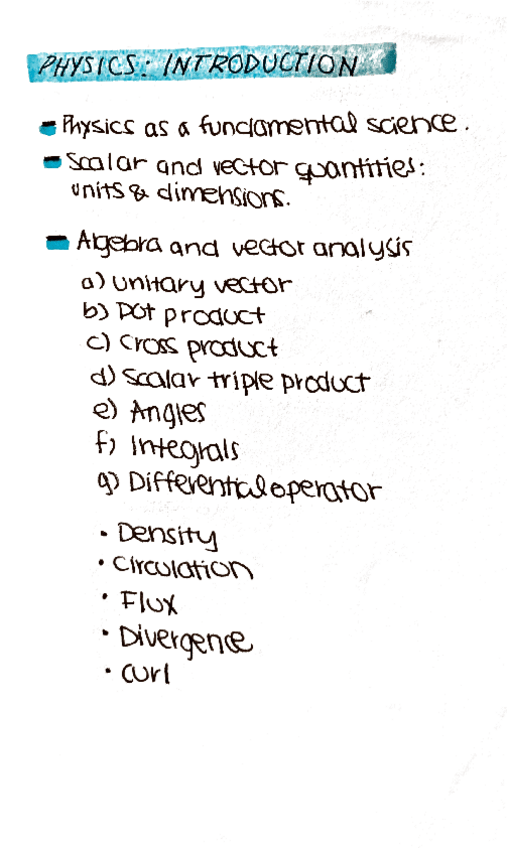 PHYSICS: INTRODUCTION
Physics as a fundamental science.
Scalar and vector quantities:
units & dimensions.
Algebra and vector analysis
a) unitary vector
b) Dot product
c) Cross product
d) Scalar triple product
e) Angles
f) Integrals
g) Differential operator
• Density
• Circulation
• Flux
• Divergence
• Curl